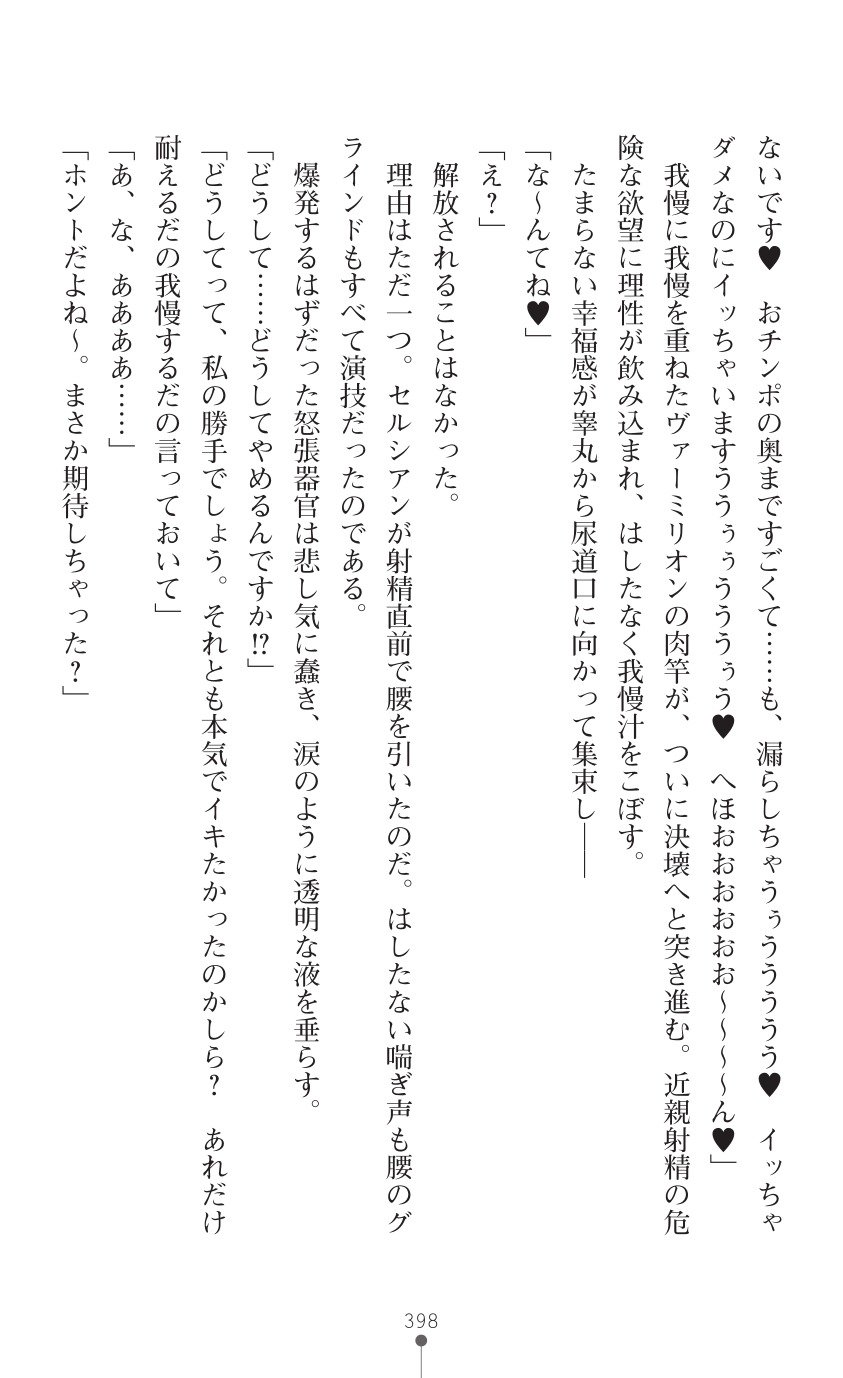 ないです♥　おチンポの奥まですごくて……も、漏らしちゃうぅうううう♥　イッちゃ
ダメなのにイッちゃいますううぅぅうううぅう♥　へほおおおおおお～～～～ん♥」
　我慢に我慢を重ねたヴァーミリオンの肉竿が、ついに決壊へと突き進む。近親射精の危
険な欲望に理性が飲み込まれ、はしたなく我慢汁をこぼす。
　たまらない幸福感が睾丸から尿道口に向かって集束し――
「な～んてね♥」
「え？」
　解放されることはなかった。
　理由はただ一つ。セルシアンが射精直前で腰を引いたのだ。はしたない喘ぎ声も腰のグ
ラインドもすべて演技だったのである。
　爆発するはずだった怒張器官は悲し気に蠢き、涙のように透明な液を垂らす。
「どうして……どうしてやめるんですか!?」
「どうしてって、私の勝手でしょう。それとも本気でイキたかったのかしら？　あれだけ
耐えるだの我慢するだの言っておいて」
「あ、な、ああああ……」
「ホントだよね～。まさか期待しちゃった？」
398